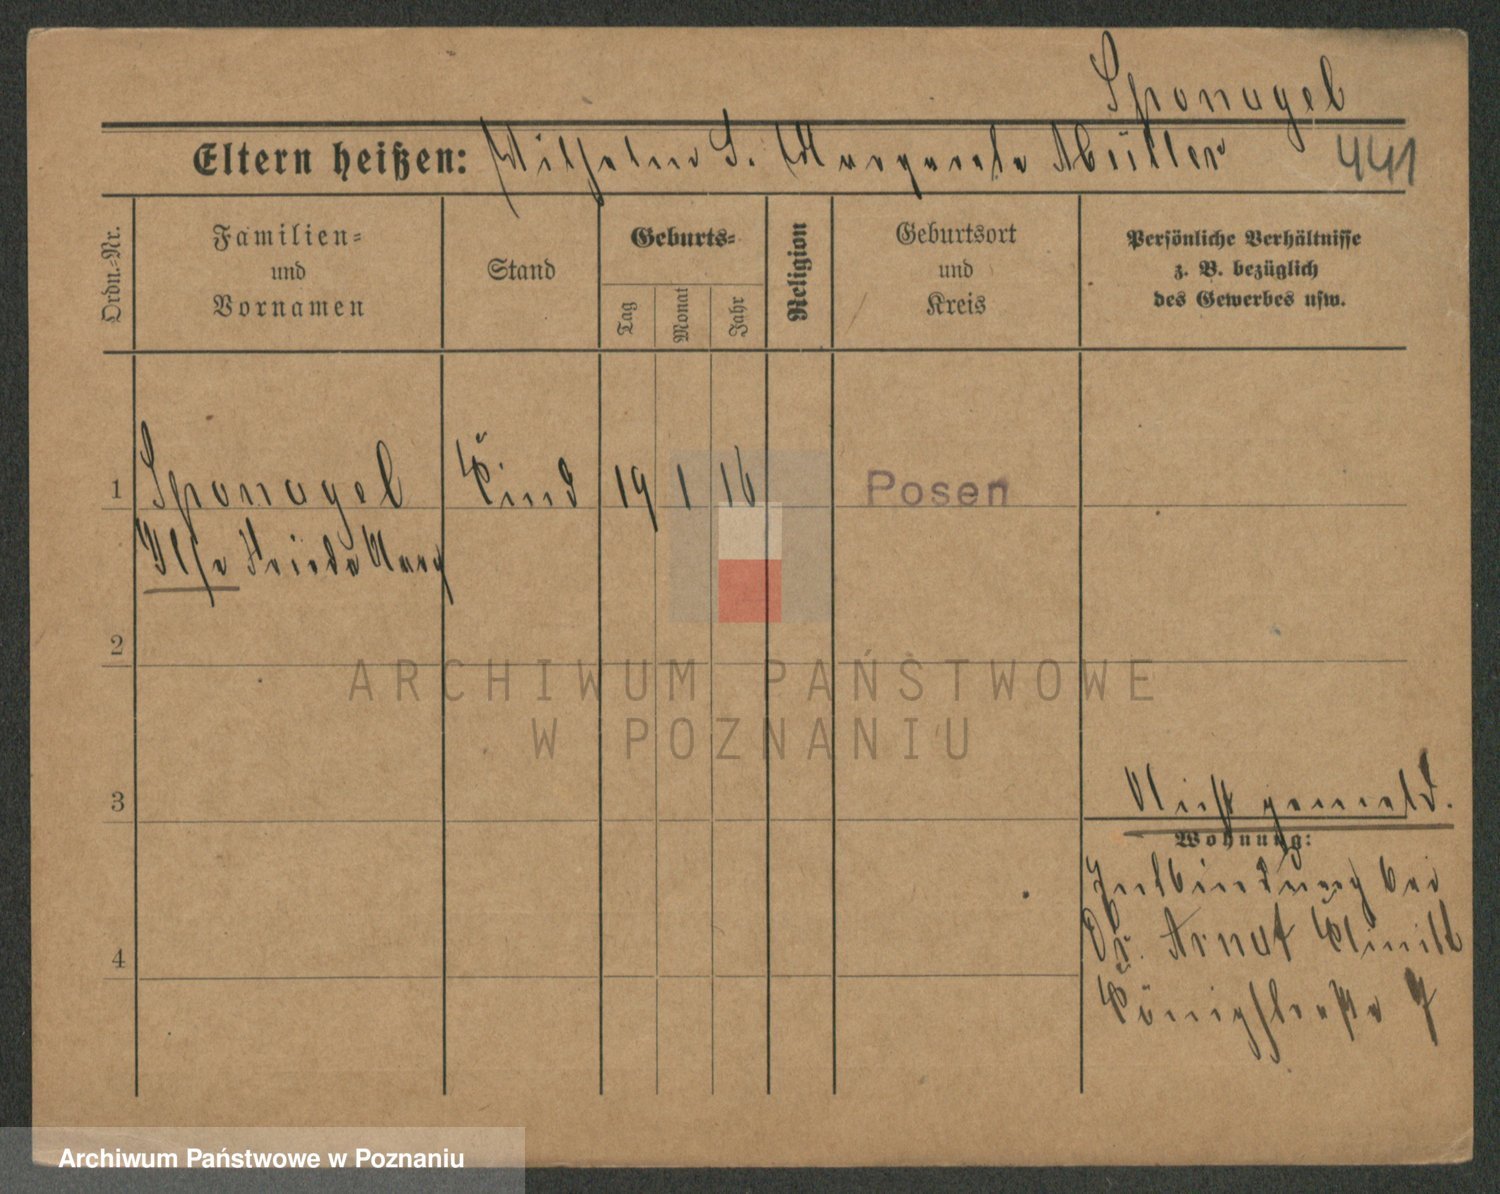 Sponagel
Eltern heißen: Wilhelm S. Margarete Müller 441
Ordn.-Nr.
Familien-
und
Vornamen
Stand
Geburts-
Tag
Monat
Jahr
Religion
Geburtsort
und
Kreis
Persönliche Verhältnisse
z. B. bezüglich
des Gewerbes usw.
1 Sponagel Kind 19 1 16 Posen
Ilse Frieda
2
3
Nicht gemeld.
Wohnung:
Entbindung bei
Dr. Arnat Klinik
4
Königstraße 7
ARCHIWUM PAŃSTWOWE
W POZNANIU
Archiwum Państwowe w Poznaniu